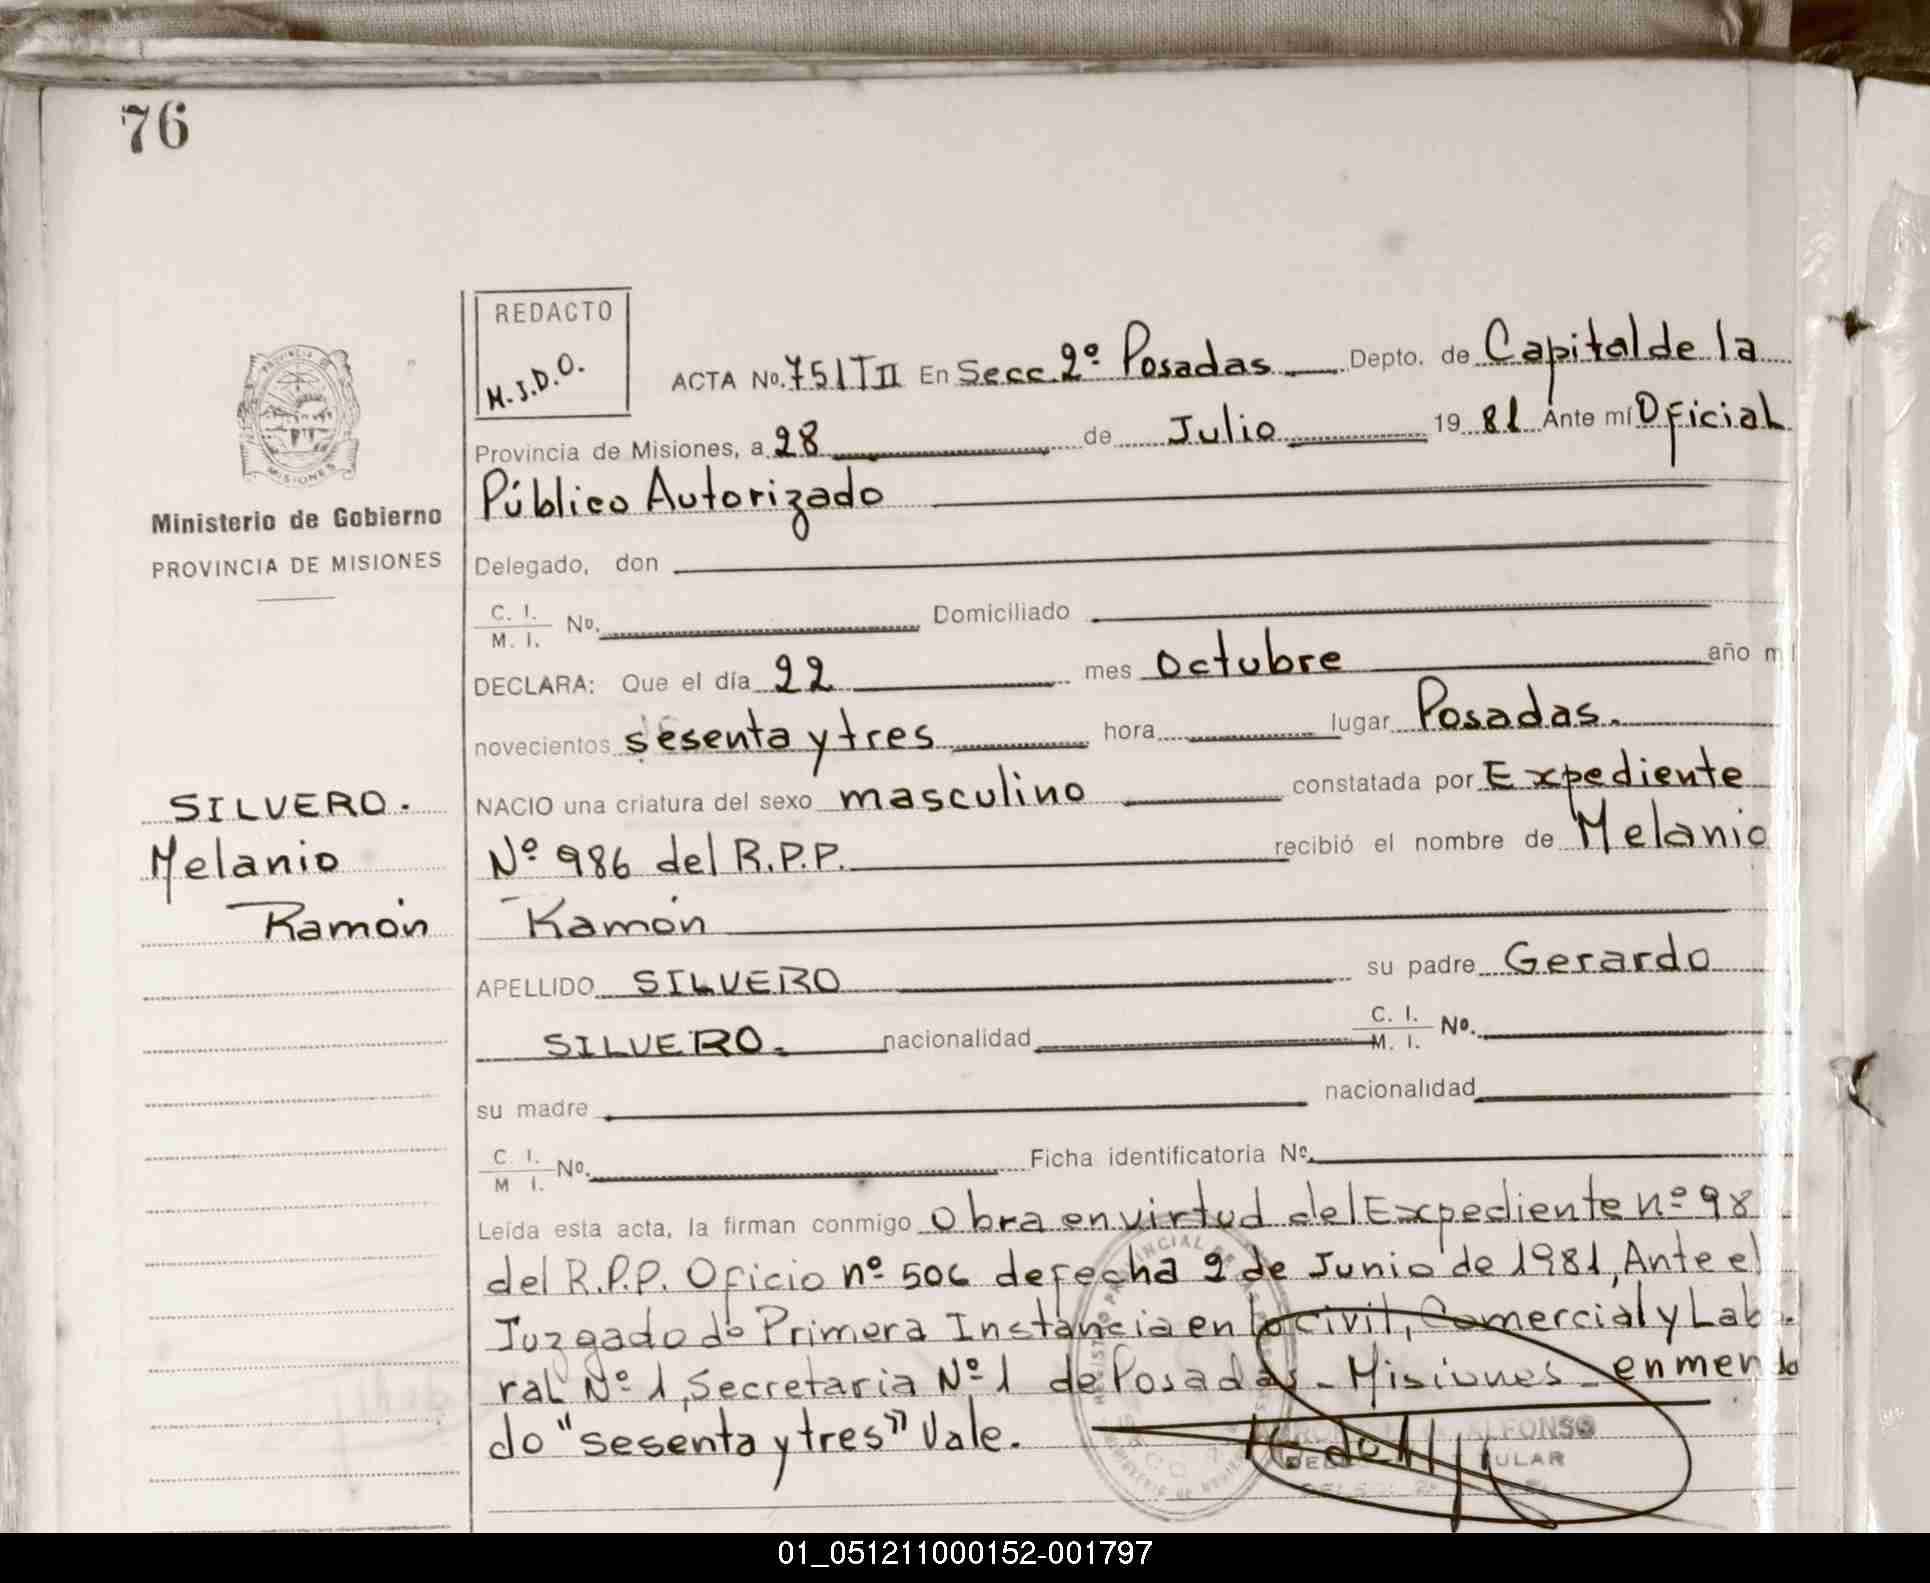 76
REDACTO
M.J.D.O.
ACTA No. 751 T II En Secc. 2º Posadas Depto. de Capital de la
Provincia de Misiones, a 28 de Julio 19 81 Ante mí Oficial
Público Autorizado
Ministerio de Gobierno
PROVINCIA DE MISIONES
Delegado, don
C. I.
M. I. No. Domiciliado
DECLARA: Que el día 22 mes Octubre año mil
novecientos sesenta y tres hora lugar Posadas.
SILVERO.
Melanio
Ramón
NACIO una criatura del sexo masculino constatada por Expediente
Nº 986 del R.P.P. recibió el nombre de Melanio
Ramón
APELLIDO SILVERO su padre Gerardo
SILVERO. nacionalidad C. I. M. I. No.
su madre nacionalidad
C. I.
M I. No. Ficha identificatoria No.
Leída esta acta, la firman conmigo Obra en virtud del Expediente nº 98
del R.P.P. Oficio nº 506 de fecha 2 de Junio de 1981, Ante el
Juzgado de Primera Instancia en lo civil, Comercial y Labo-
ral Nº 1, Secretaria Nº 1 de Posadas - Misiones - enmenda
do "sesenta y tres" Vale.
ALFONSO
01_051211000152-001797